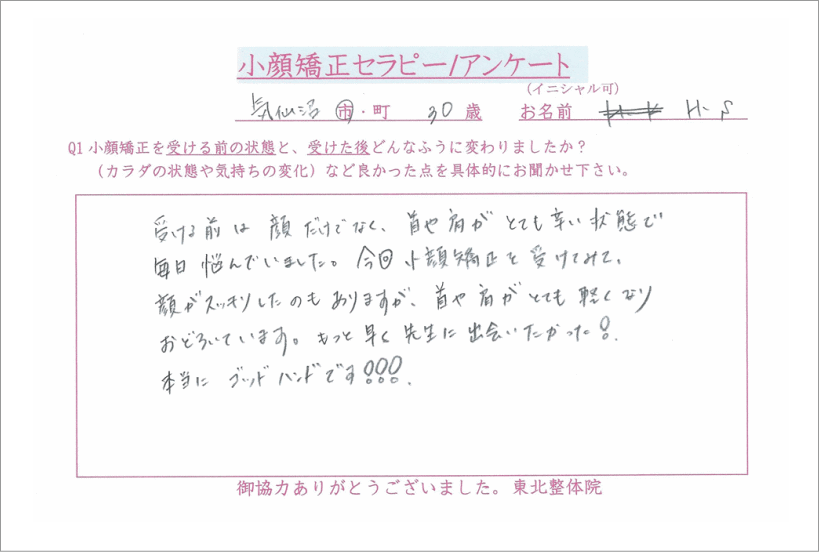 小顔矯正セラピー/アンケート
(イニシャル可)
気仙沼 市・町 30歳 お名前 H.S
Q1 小顔矯正を受ける前の状態と、受けた後どんなふうに変わりましたか？
（カラダの状態や気持ちの変化）など良かった点を具体的にお聞かせ下さい。
受ける前は 顔だけでなく、首や肩が とても辛い状態で
毎日 悩んでいました。今回 小顔矯正を 受けてみて、
顔がスッキリしたのもありますが、首や肩がとても軽くなり
おどろいています。もっと早く 先生に出会いたかった!.
本当に ゴッドハンドです!!!.
御協力ありがとうございました。東北整体院